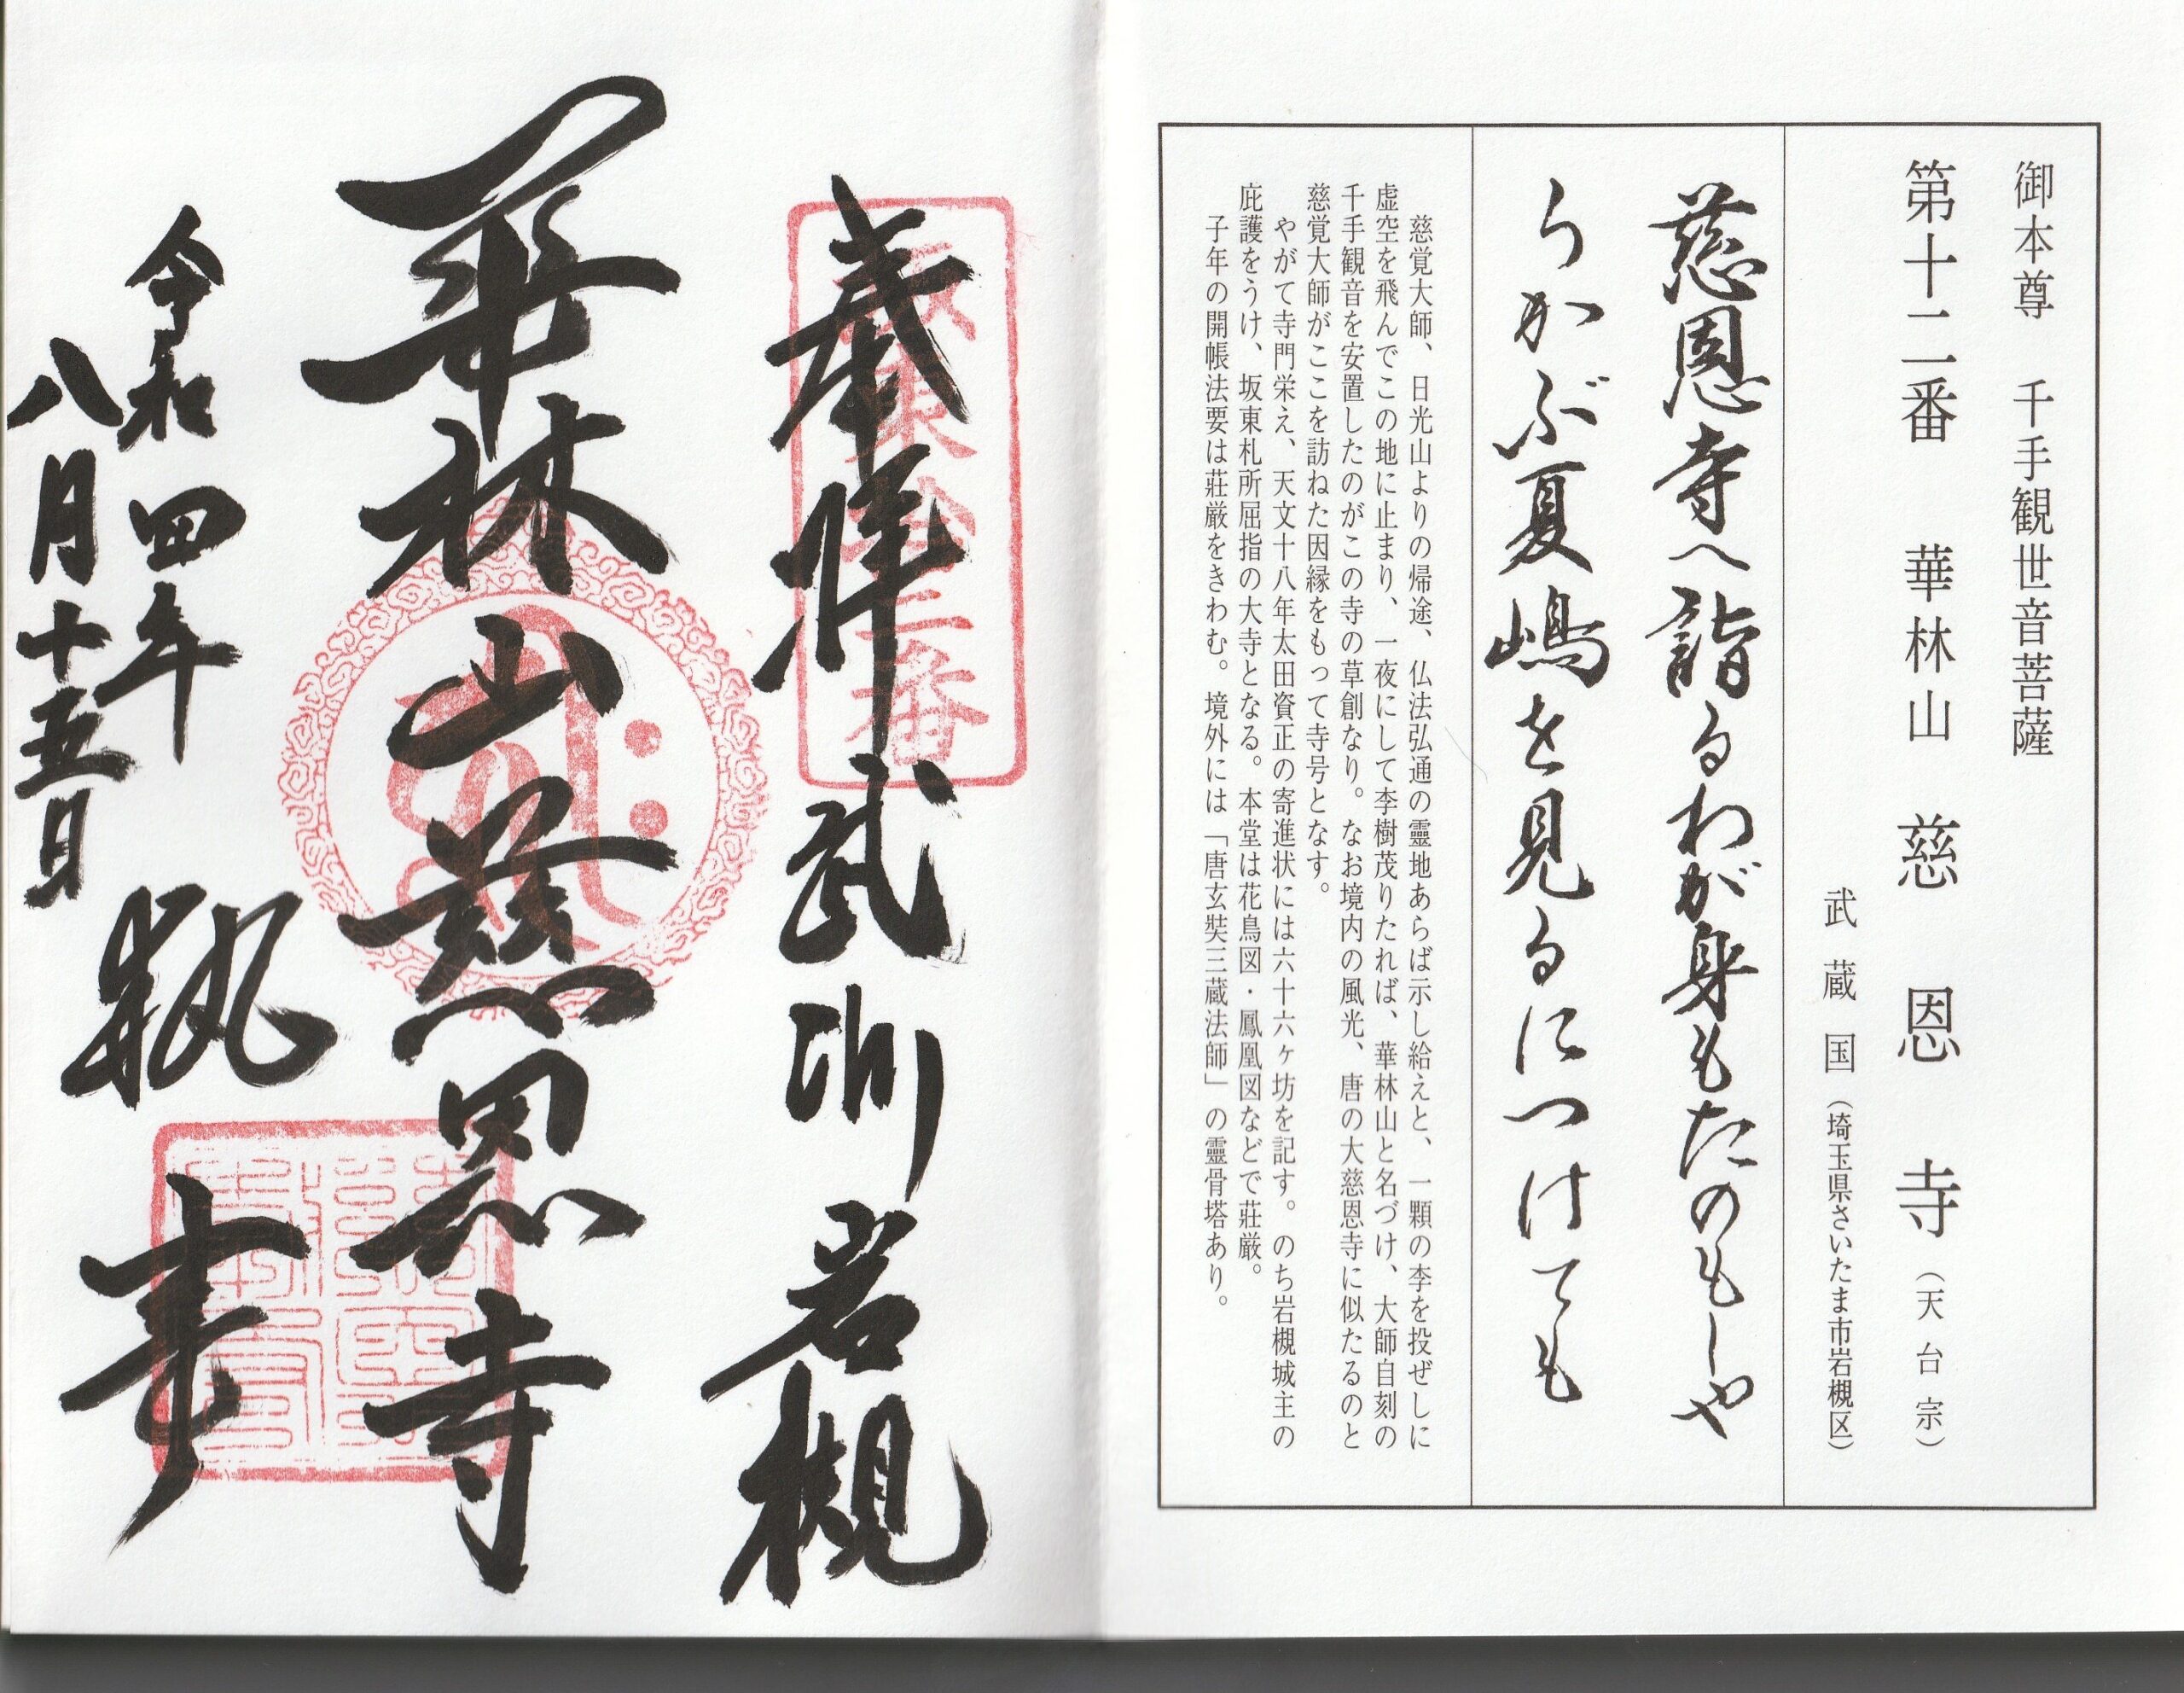 御本尊　千手観世音菩薩
第十二番　華林山　慈恩寺（天台宗）
武蔵国（埼玉県さいたま市岩槻区）
慈恩寺へ詣るわが身もたのもしや
うかぶ夏嶋を見るにつけても
慈覚大師、日光山よりの帰途、仏法弘通の靈地あらば示し給えと、一顆の李を投ぜしに
虚空を飛んでこの地に止まり、一夜にして李樹茂りたれば、華林山と名づけ、大師自刻の
千手観音を安置したのがこの寺の草創なり。なお境内の風光、唐の大慈恩寺に似たるのと
慈覚大師がここを訪ねた因縁をもって寺号となす。
やがて寺門栄え、天文十八年太田資正の寄進状には六十六ヶ坊を記す。のち岩槻城主の
庇護をうけ、坂東札所屈指の大寺となる。本堂は花鳥図・鳳凰図などで荘厳。
子年の開帳法要は荘厳をきわむ。境外には「唐玄奘三蔵法師」の靈骨塔あり。
奉拝　武州岩槻
坂東拾二番
華林山慈恩寺
令和四年
八月十五日
執事